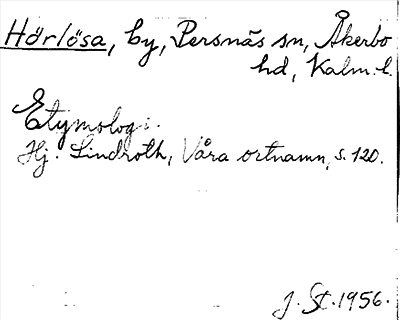 Hörlösa, by, Persnäs sn, Åkerbo
hd, Kalm. l.
Etymologi.
Hj. Lindroth, Våra ortnamn, s. 120.
J. St. 1956.